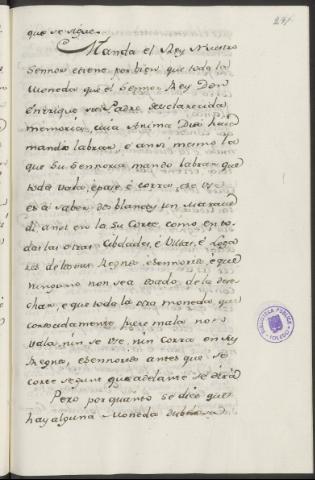 241
que se sigue.
Manda el Rey Nuestro
Sennor e tiene por bien que toda la
Moneda que el Sennor Rey Don
Enrrique su Padre de esclarecida
memoria, cuia Anima Dios haia
mandó labrar, e ansi mesmo la
que Su Sennoria mando labrar que
toda vala, e pase, é corra, é se use
es á saber dos blancas un Marave
di, ansi en la su Corte, como en to
das las otras Cibdades, é Villas, é Loga
res de los sus Regnos, é Sennorios, é que
ninguno non sea osado de la dese
char, e que toda la otra moneda que
conoscidamente fuere mala non
vala, nin se use, nin corra en sus
Regnos, é Sennorios antes que se
corte segunt que adelante se dirá
Pero por quanto se dice que
hay alguna Moneda dubdosa
BIBLIOTECA PUBLICA
TOLEDO